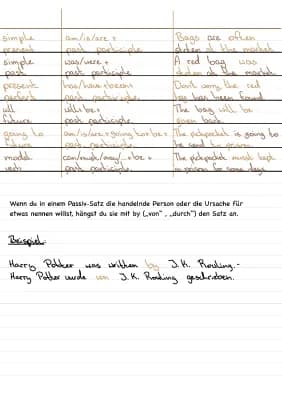 simple am/is/are + Bags are often
present past participle stolen at the market.
simple was/were + A red bag was
past past participle stolen at the market.
present has/have+been+ Don't worry, the red
perfect past participle bag has been found
will will+be+ The bag will be
future past participle given back.
going to am/is/are+going to+be+ The pickpocket is going to
future past participle be send to prison.
modal + be + The pickpocket must kept
verb past participle in prison for some days.
Wenn du in einem Passiv-Satz die handelnde Person oder die Ursache für
etwas nennen willst, hängst du sie mit by („von" , „durch") den Satz an.
Beispiel:
Harry Potter was written by J.K. Rowling.-
Harry Potter wurde von J.K. Rowling geschrieben.